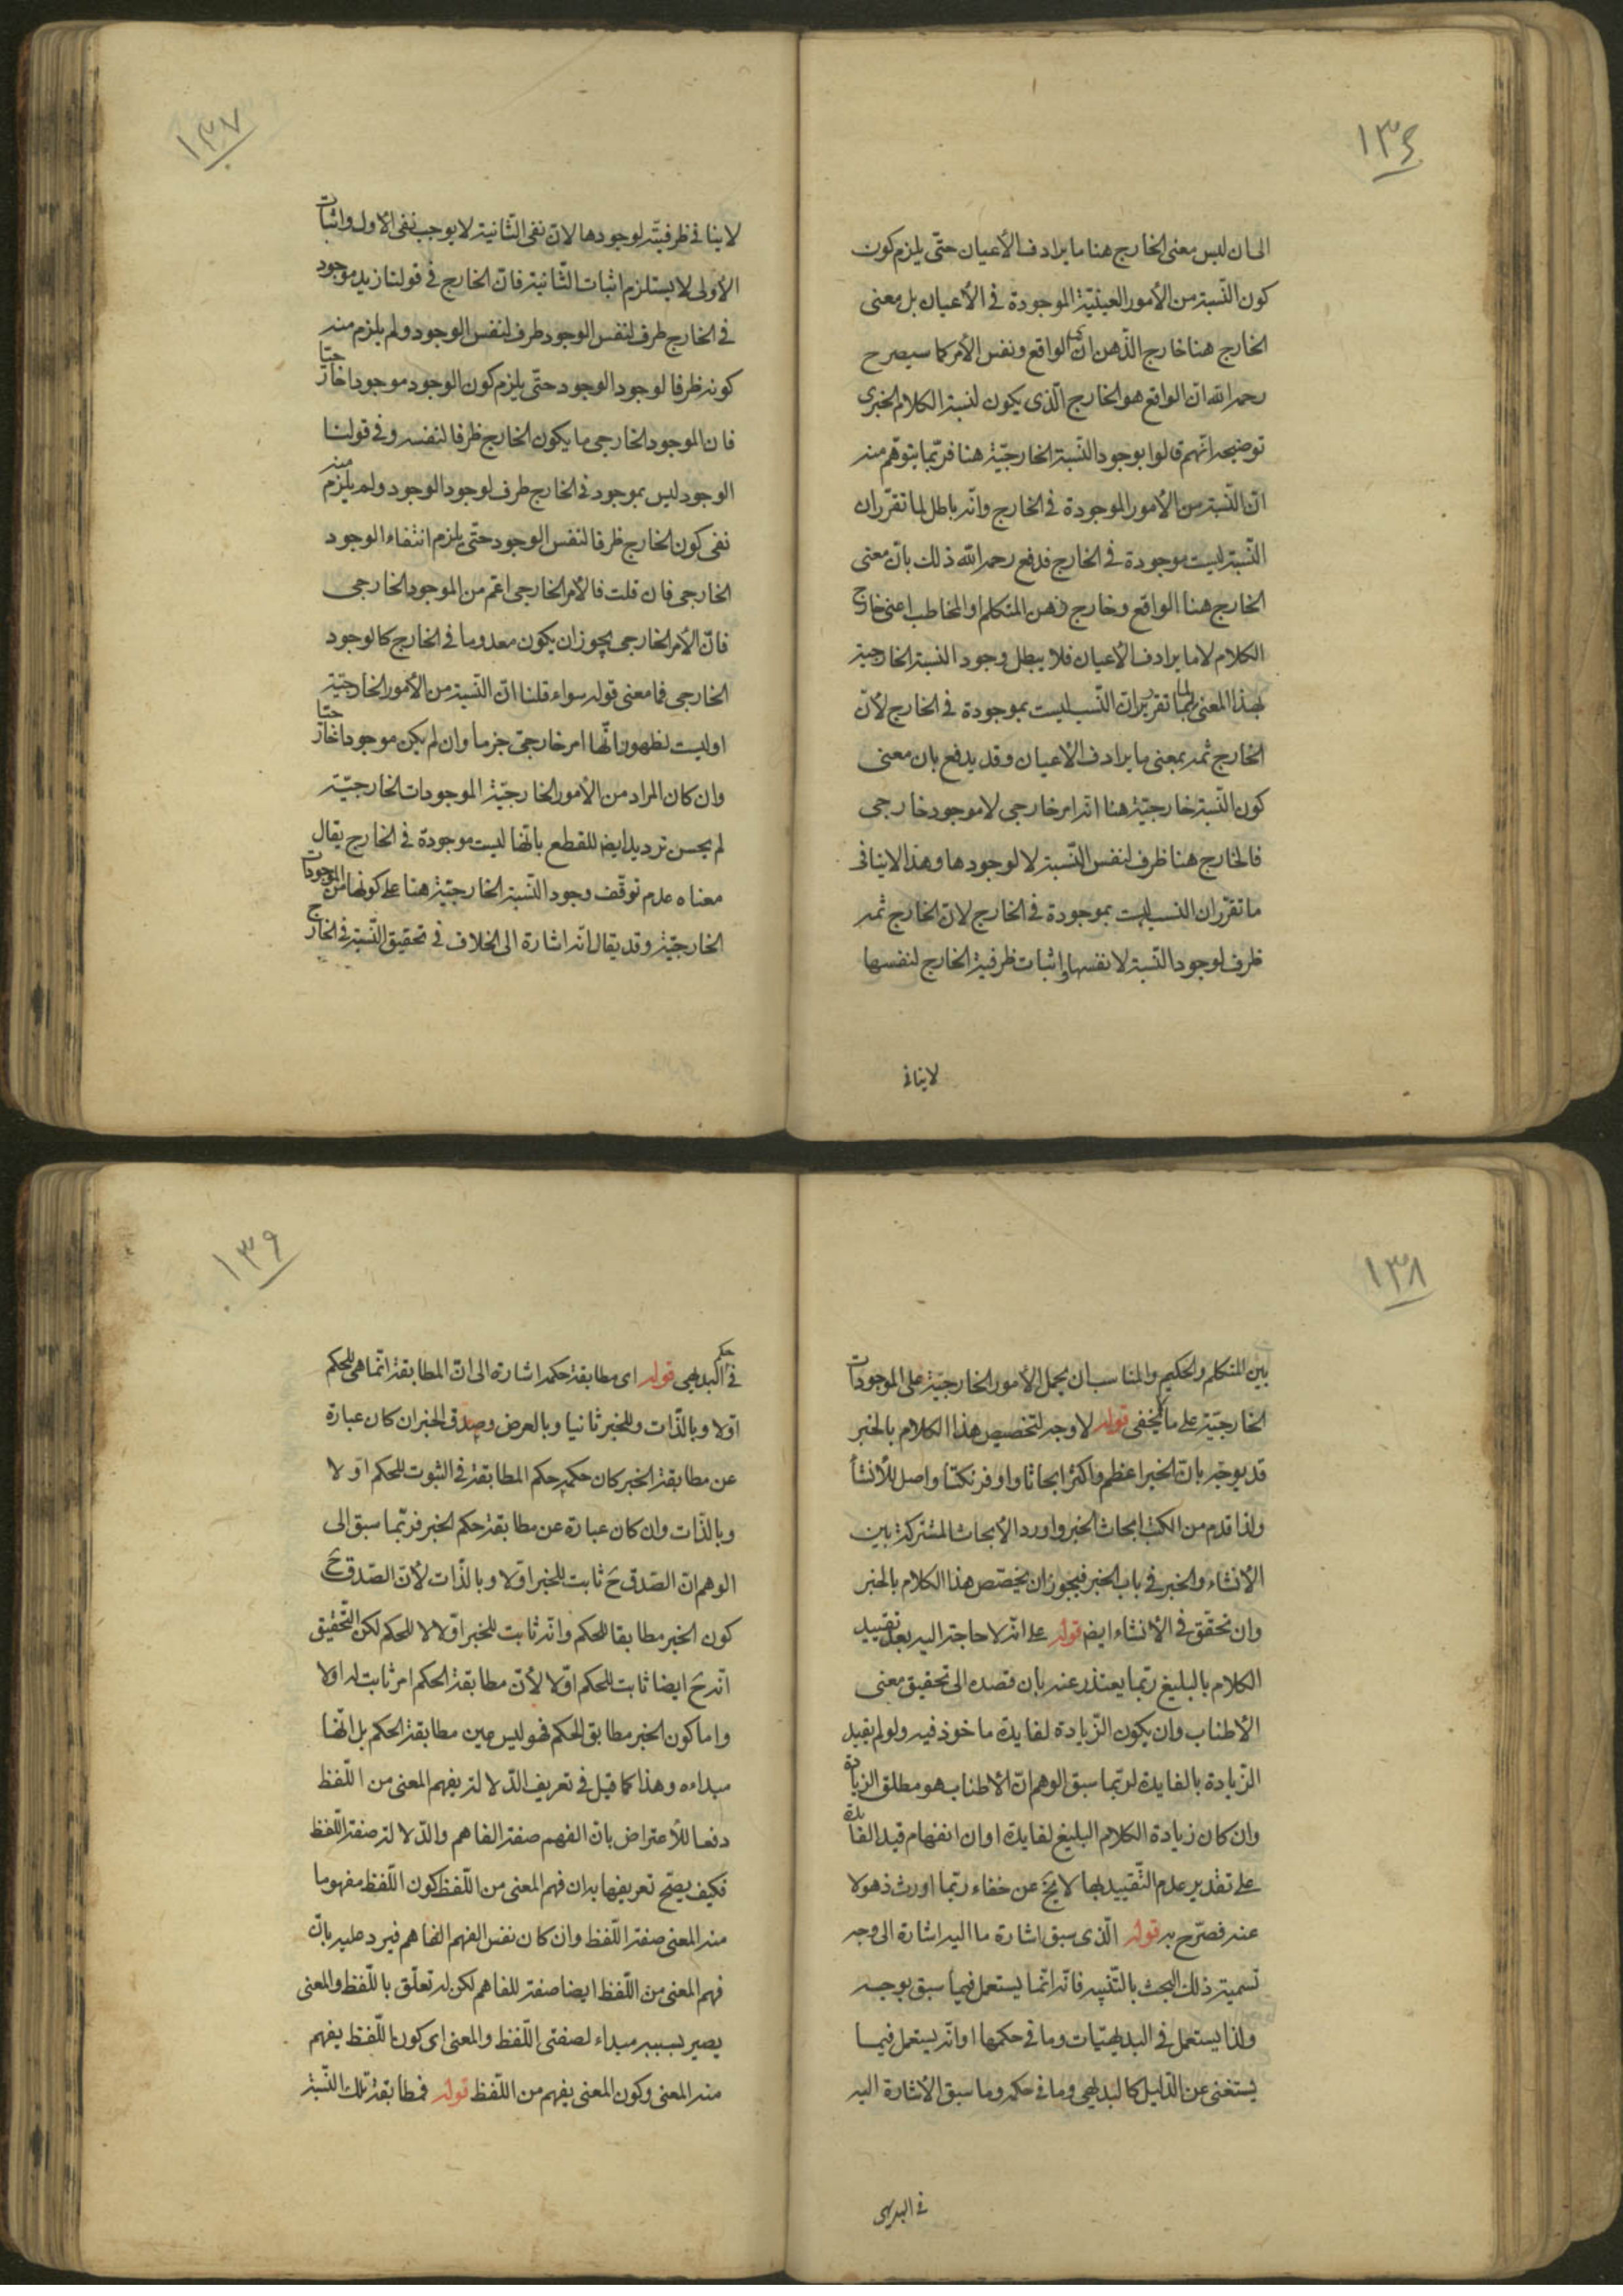 ١٣٦
الى ان ليس معنى الخارج هنا ما يرادف الأعيان حتّى يلزم كون
كون النّسبة من الأمور العينيّة الموجودة فى الأعيان بل معنى
الخارج هنا خارج الذّهن اى الواقع ونفس الأمر كما سيصرح
رحمه الله انّ الواقع هو الخارج الّذى يكون لنسبة الكلام الخبرى
توضيحه انّهم قالوا بوجود النّسبة الخارجيّة هنا فربّما يتوهّم منه
انّ النّسبة من الأمور الموجودة فى الخارج وانّه باطل لما تقرّر ان
النّسبة ليست موجودة فى الخارج فدفع رحمه الله ذلك بانّ معنى
الخارج هنا الواقع وخارج ذهن المتكلم او المخاطب اعنى خارج
الكلام لا ما يرادف الأعيان فلا يبطل وجود النسبة الخارجية
بهذا المعنى لما تقرر ان النّسب ليست بموجودة فى الخارج لأنّ
الخارج ثمه بمعنى ما يرادف الأعيان وقد يدفع بان معنى
كون النّسبة خارجيّة هنا انه امر خارجى لا موجود خارجى
فالخارج هنا ظرف لنفس النّسبة لا لوجودها وهذا لا ينافى
ما تقرّر ان النسب ليست بموجودة فى الخارج لانّ الخارج ثمه
ظرف لوجود النّسبة لا نفسها واثبات ظرفية الخارج لنفسها
لا ينافى
١٣٧
لا ينافى ظرفيّته لوجودها لانّ نفى الثّانية لا يوجب نفى الأولى واثبات
الأولى لا يستلزم اثبات الثّانية فانّ الخارج فى قولنا زيد موجود
فى الخارج ظرف لنفس الوجود ظرف لنفس الوجود ولم يلزم منه
كونه ظرفا لوجود الوجود حتّى يلزم كون الوجود موجودا خارجيّا
فان الموجود الخارجى ما يكون الخارج ظرفا لنفسه وفى قولنا
الوجود ليس بموجود فى الخارج ظرف لوجود الوجود ولم يلزم منه
نفى كون الخارج ظرفا لنفس الوجود حتّى يلزم انتفاء الوجود
الخارجى فان قلت فالأمر الخارجى اعمّ من الموجود الخارجى
فانّ الأمر الخارجى يجوز ان يكون معدوما فى الخارج كالوجود
الخارجى فما معنى قوله سواء قلنا انّ النّسبة من الأمور الخارجيّة
او ليست لظهور انّها امر خارجىّ جزما وان لم يكن موجودا خارجيّا
وان كان المراد من الأمور الخارجيّة الموجودات الخارجيّة
لم يحسن ترديد ايضا للقطع بانّها ليست موجودة فى الخارج يقال
معناه عدم توقّف وجود النّسبة الخارجيّة هنا على كونها من الموجودات
الخارجيّة وقد يقال انّه اشارة الى الخلاف فى تحقيق النّسبة فى الخارج
١٣٨
بين المتكلم والحكيم والمناسب ان يحمل الأمور الخارجيّة على الموجودات
الخارجيّة على ما لا يخفى قوله لا وجه لتخصيص هذا الكلام بالخبر
قد يوجّه بانّ الخبر اعظم واكثر ابحاثا واوفر نكتا واصل للأنشأ
ولذا قدم من الكتب ابحاث الخبر واورد الأبحاث المشتركة بين
الأنشاء والخبر فى باب الخبر فيجوز ان يخصّص هذا الكلام بالخبر
وان تحقّق فى الأنشاء ايضا قوله على انّه لا حاجة اليه بعد تقييد
الكلام بالبليغ ربّما يعتذر عنه بان قصده الى تحقيق معنى
الأطناب وان يكون الزّيادة لفايدة ماخوذ فيه ولو لم يقيد
الزّيادة بالفايدة لربّما سبق الوهم انّ الأطناب هو مطلق الزيادة
وان كان زيادة الكلام البليغ لفايدة او ان انفهام قيد الفايدة
على تقدير عدم التّقييد بها لا يخ عن خفاء ربّما اورث ذهولا
عنه فصرّح به قوله الّذى سبق اشارة ما اليه اشارة الى وجه
تسمية ذلك البحث بالتّنبيه فانّه انّما يستعمل فيما سبق بوجه
ولذا يستعمل فى البديهيّات وما فى حكمها او انّه يستعمل فيما
يستغنى عن الدّليل كالبديهى وما فى حكمه وما سبق الأشارة اليه
فى البديهى
١٣٩
فى حكم البديهى قوله اى مطابقة حكمه اشارة الى انّ المطابقة انّما هى للحكم
اوّلا وبالذّات وللخبر ثانيا وبالعرض وصدق الخبر ان كان عبارة
عن مطابقة الخبر كان حكمه حكم المطابقة فى الثبوت للحكم اوّلا
وبالذّات وان كان عبارة عن مطابقة حكم الخبر فربّما سبق الى
الوهم انّ الصّدق ح ثابت للخبر اوّلا وبالذّات لأنّ الصّدق ح
كون الخبر مطابقا للحكم وانّه ثابت للخبر اوّلا لا للحكم لكن التّحقيق
انّه ح ايضا ثابت للحكم اوّلا لأنّ مطابقة الحكم امر ثابت له اولا
واما كون الخبر مطابق الحكم فهو ليس عين مطابقة الحكم بل انّها
مبداءه وهذا كما قيل فى تعريف الدّلالة بفهم المعنى من اللّفظ
دفعا للأعتراض بانّ الفهم صفة الفاهم والدّلالة صفة اللّفظ
فكيف يصحّ تعريفها به ان فهم المعنى من اللّفظ كون اللّفظ مفهوما
منه المعنى صفة اللّفظ وان كان نفس الفهم الفاهم فيرد عليه بانّ
فهم المعنى من اللّفظ ايضا صفة للفاهم لكن له تعلّق باللّفظ والمعنى
يصير بسببه مبداء لصفتى اللّفظ والمعنى اى كون اللّفظ يفهم
منه المعنى وكون المعنى يفهم من اللّفظ قوله فمطابقة تلك النّسبة